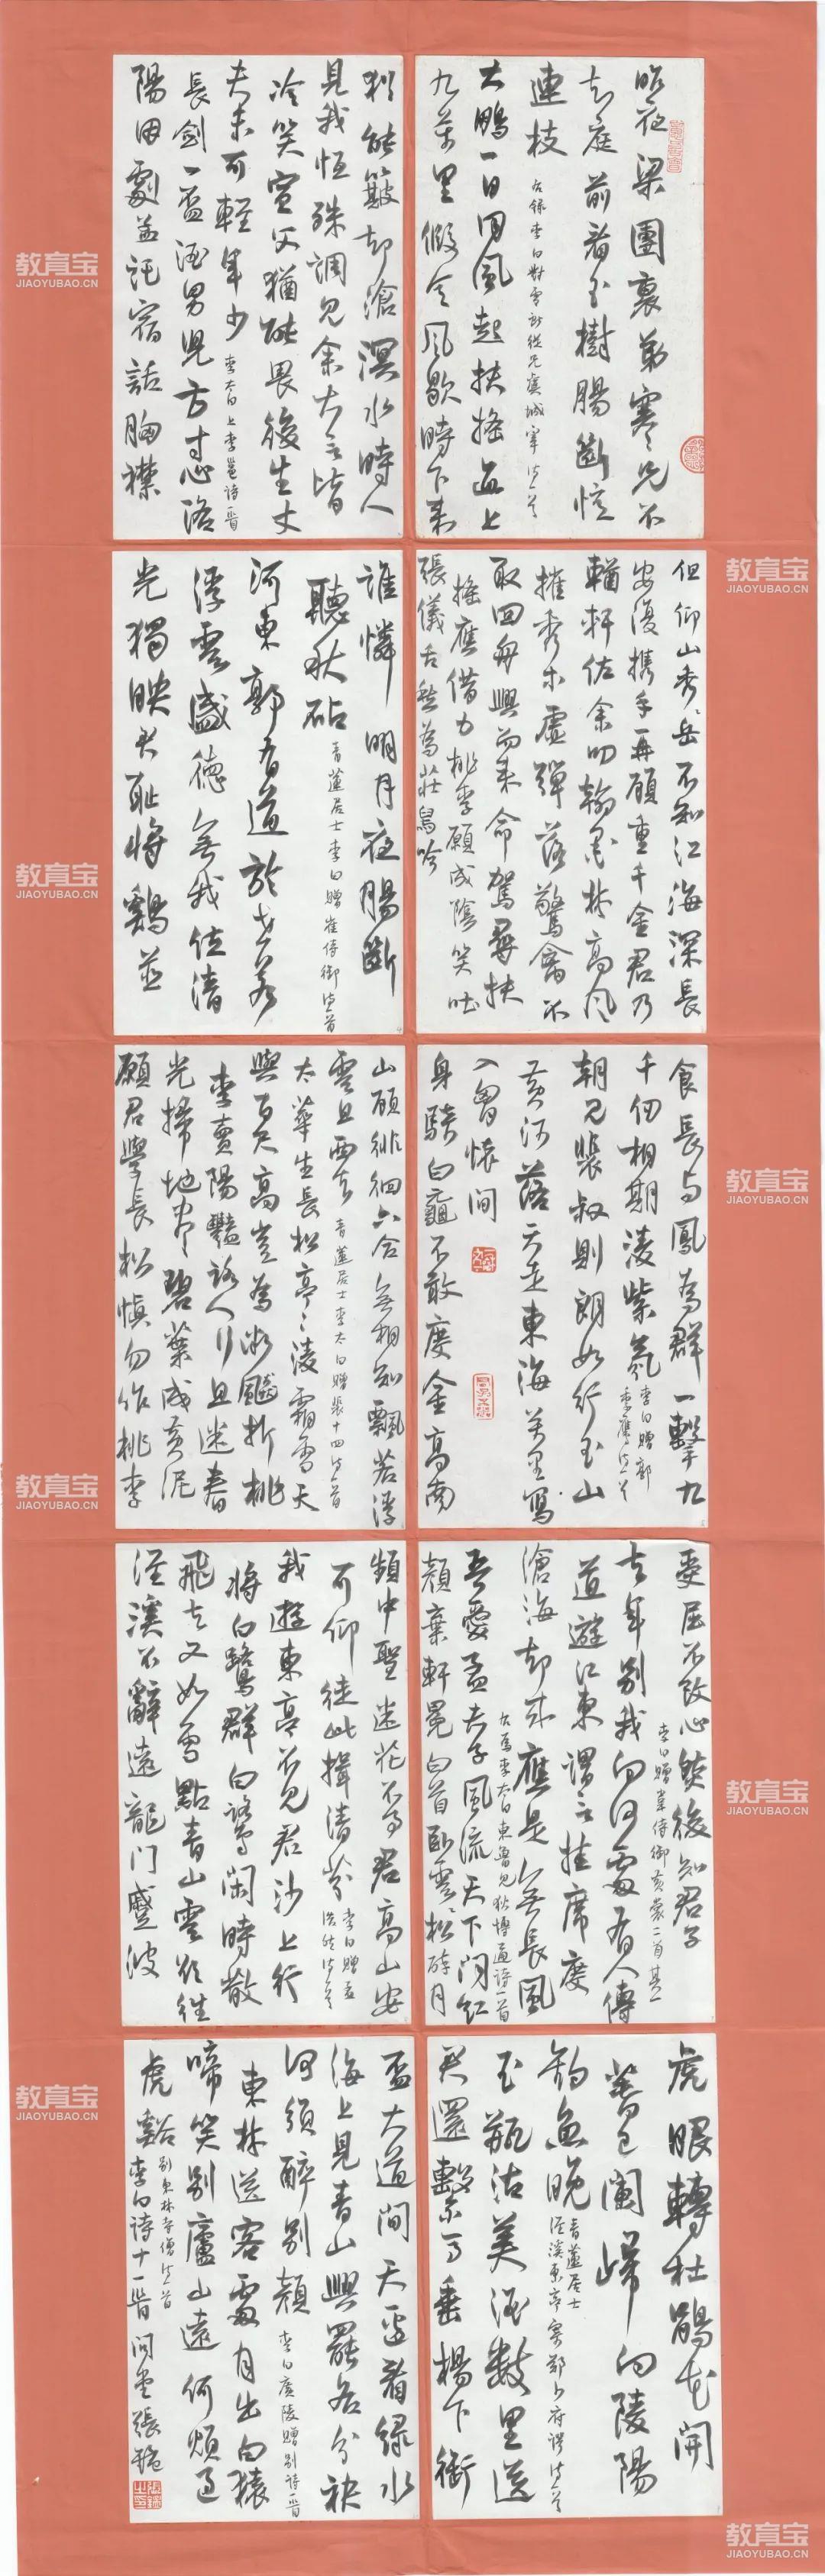 昨夜梁園裏弟寒兄不
知庭前看玉樹腸斷憶
連枝 右錄李白對雪獻從兄虞城宰詩一首
大鵬一日同風起扶搖直上
九萬里假令風歇時下來
猶能簸却滄溟水時人
見我恒殊調見余大言皆
冷笑宣父猶能畏後生丈
夫未可輕年少 李太白上李邕詩一首
長劍一盃酒男兒方寸心洛
陽因劇孟託宿話胸襟
但仰山秀岳不知江海深長
安復携手再顧重千金君乃
輶軒佐余叨翰墨林高風
摧秀木虛彈落驚禽不
取回舟興而來命駕尋扶
搖應借力桃李願成陰笑吐
張儀舌愁為莊舄吟
誰憐明月夜腸斷
聽秋砧 青蓮居士李白贈崔侍御詩一首
河東郭有道於世若
浮雲盛德無我位清
光獨映君恥將鷄並
食長與鳳為群一擊九
千仞相期凌紫氛 李白贈郭
季鷹詩一首
朝見裴叔則朗如行玉山
黃河落天走東海萬里寫
入胸懷間
身騎白黿不敢度金高南
山顧徘徊六合無相知飄若浮
雲且西去 青蓮居士李太白贈裴十四詩一首
太華生長松亭亭凌霜雪天
與百尺高豈為微飈折桃
李賣陽豔路人行且迷春
光掃地盡碧葉成黃泥
願君學長松慎勿作桃李
受屈不改心然後知君子
李白贈韋侍御黃裳二首其一
去年別我向何處有人傳
道遊江東謂言挂席度
滄海却來應是無長風
右為李太白東魯見狄博通詩一首
吾愛孟夫子風流天下聞紅
顏棄軒冕白首臥雲松醉月
頻中聖迷花不事君高山安
可仰徒此揖清芬 李白贈孟
浩然詩一首
我遊東亭不見君沙上行
將白鷺群白鷺閑時散
飛去又如雪點青山雲欲往
涇溪不辭遠龍門蹙波
虎眼轉杜鵑花開
春已闌歸向陵陽
釣魚晚 青蓮居士
涇溪東亭寄鄭少府諤詩一首
玉瓶沽美酒數里送
君還繫馬垂楊下銜
盃大道間天邊看綠水
海上見青山興罷各分袂
何須醉別顏 李白廣陵贈別詩一首
東林送客處月出白猿
啼笑別廬山遠何煩過
虎谿 別東林寺僧詩一首
李白詩十一首 問堂張
教育宝
JIAOYUBAO.CN
教育宝
JIAOYUBAO.CN
教育宝
JIAOYUBAO.CN
教育宝
JIAOYUBAO.CN
教育宝
JIAOYUBAO.CN
教育宝
JIAOYUBAO.CN
教育宝
JIAOYUBAO.CN
教育宝
JIAOYUBAO.CN